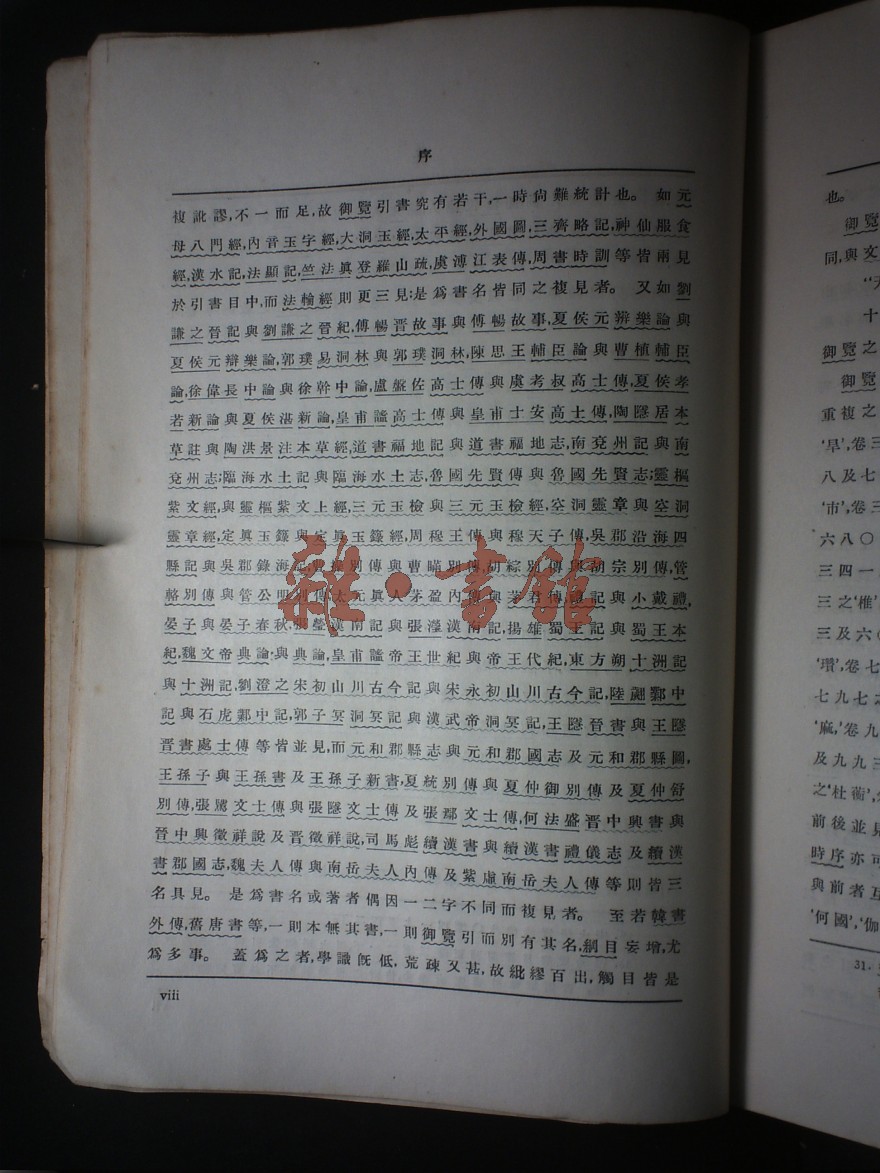 序
複訛謬,不一而足,故御覽引書究有若干,一時尙難統計也。 如元
母八門經,內音玉字經,大洞玉經,太平經,外國圖,三齊略記,神仙服食
經,漢水記,法顯記,竺法眞登羅山疏,虞溥江表傳,周書時訓等皆兩見
於引書目中,而法輪經則更三見;是爲書名皆同之複見者。 又如劉
謙之晉記與劉謙之晉紀,傅暢晋故事與傅暢故事,夏侯元辨樂論與
夏侯元辯樂論,郭璞易洞林與郭璞洞林,陳思王輔臣論與曹植輔臣
論,徐偉長中論與徐幹中論,盧盤佐高士傳與虞考叔高士傳,夏侯孝
若新論與夏侯湛新論,皇甫謐高士傳與皇甫士安高士傳,陶隱居本
草註與陶洪景注本草經,道書福地記與道書福地志,南兗州記與南
兗州志;臨海水土記與臨海水土志,魯國先賢傳與魯國先賢志;靈樞
紫文經,與靈樞紫文上經,三元玉檢與三元玉檢經,空洞靈章與空洞
靈章經,定眞玉籙與定眞玉籙經,周穆王傳與穆天子傳,吳郡沿海四
縣記與吳郡錄海記,曹操別傳與曹瞞別傳,胡綜別傳與胡宗別傳,管
輅別傳與管公明別傳,太元眞人茅盈內傳與茅君傳,禮記與小戴禮,
晏子與晏子春秋,張瑩漢南記與張瀅漢南記,揚雄蜀王記與蜀王本
紀,魏文帝典論與典論,皇甫謐帝王世紀與帝王代紀,東方朔十洲記
與十洲記,劉澄之宋初山川古今記與宋永初山川古今記,陸翽鄴中
記與石虎鄴中記,郭子冥洞冥記與漢武帝洞冥記,王隱晉書與王隱
晋書處士傳等皆並見,而元和郡縣志與元和郡國志及元和郡縣圖,
王孫子與王孫書及王孫子新書,夏統別傳與夏仲御別傳及夏仲舒
別傳,張騭文士傳與張隱文士傳及張鄢文士傳,何法盛晋中興書與
晉中興徵祥說及晋徵祥說,司馬彪續漢書與續漢書禮儀志及續漢
書郡國志,魏夫人傳與南岳夫人內傳及紫虛南岳夫人傳等則皆三
名具見。 是爲書名或著者偶因一二字不同而複見者。 至若韓書
外傳,舊唐書等,一則本無其書,一則御覽引而別有其名,綱目妄增,尤
爲多事。 蓋爲之者,學識旣低,荒疎又甚,故紕繆百出,觸目皆是
viii
也。
御覽
同,與文
十
御覽之
御覽
重複之
'旱',卷三
八及七
'市',卷三
六八〇
三四一
三之'椎',
三及六〇
'瓚',卷七
七九七之
'麻,'卷九
及九九三
之'杜蘅',
前後並見
時序亦可
與前者互
'何國','伽
31.
雜·書館